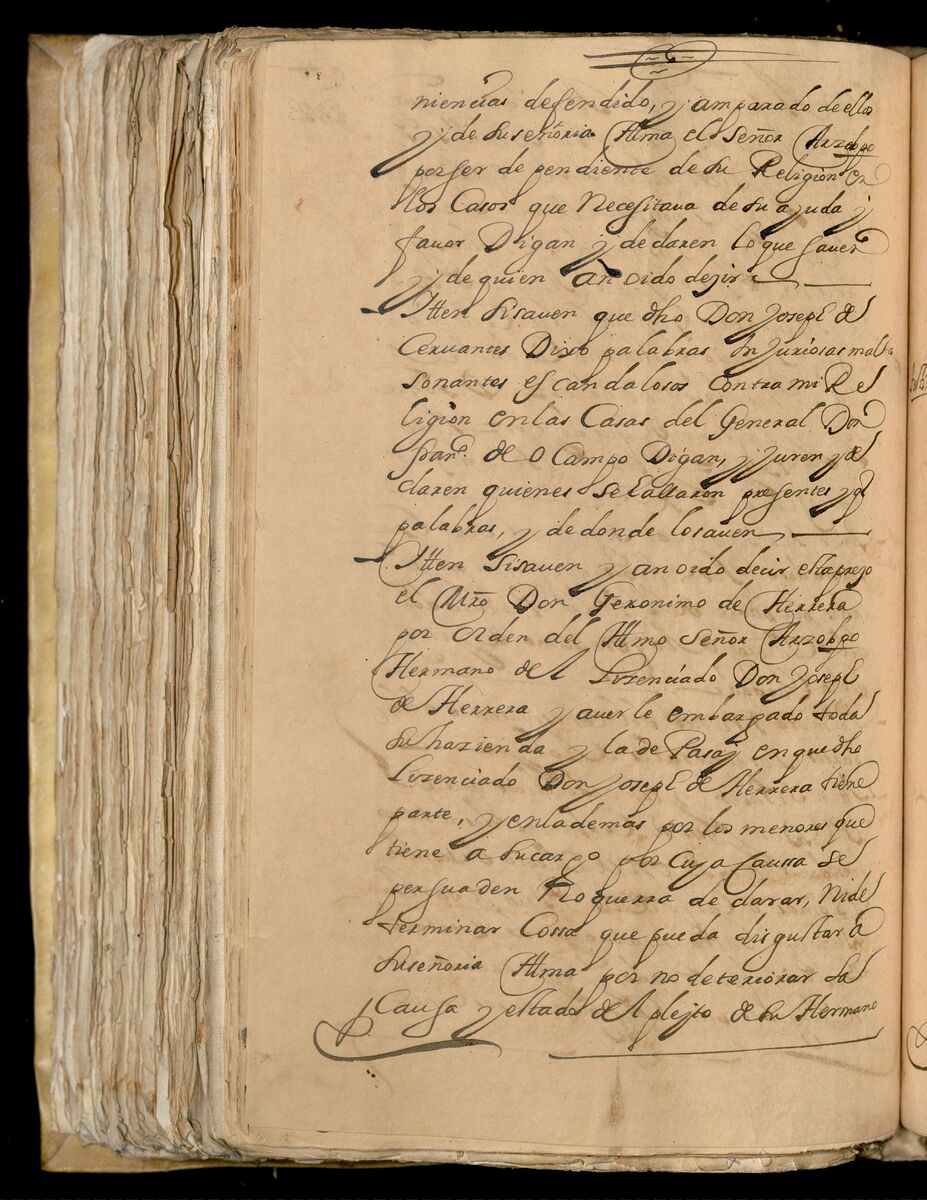 niencias defendido, y amparado de ellos
y de su señoria Illma el señor Arzobpo
por ser dependiente de su Religion en
los Casos que Necesitava de su ayuda y
favor Digan y declaren lo que saven
y de quien an oido dezir
Itten si saven que dho Don Joseph de
Cervantes Dixo palabras Injuriosas mal
sonantes escandalosas contra mi Re
ligion en las Casas del General Don
Franco. de O Campo Digan, y juren y de
claren quienes se hallaron presentes y q
palabras, y de donde lo saven
Itten si saven y an oido decir esta prezo
el Mro Don Geronimo de Herrera
por orden del Illmo señor Arzobpo
Hermano del Lizenciado Don Joseph
de Herrera y averle embargado toda
su hazienda y la de en que dho
Lizenciado Don Joseph de Herrera tiene
parte, y en la demas por los menores que
tiene a su cargo por cuya Caussa se
persuaden No querra declarar, Ni de
terminar Cossa que pueda disgustar a
su señoria Illma por no deteriorar la
Causa y estado del pleyto de su Hermano